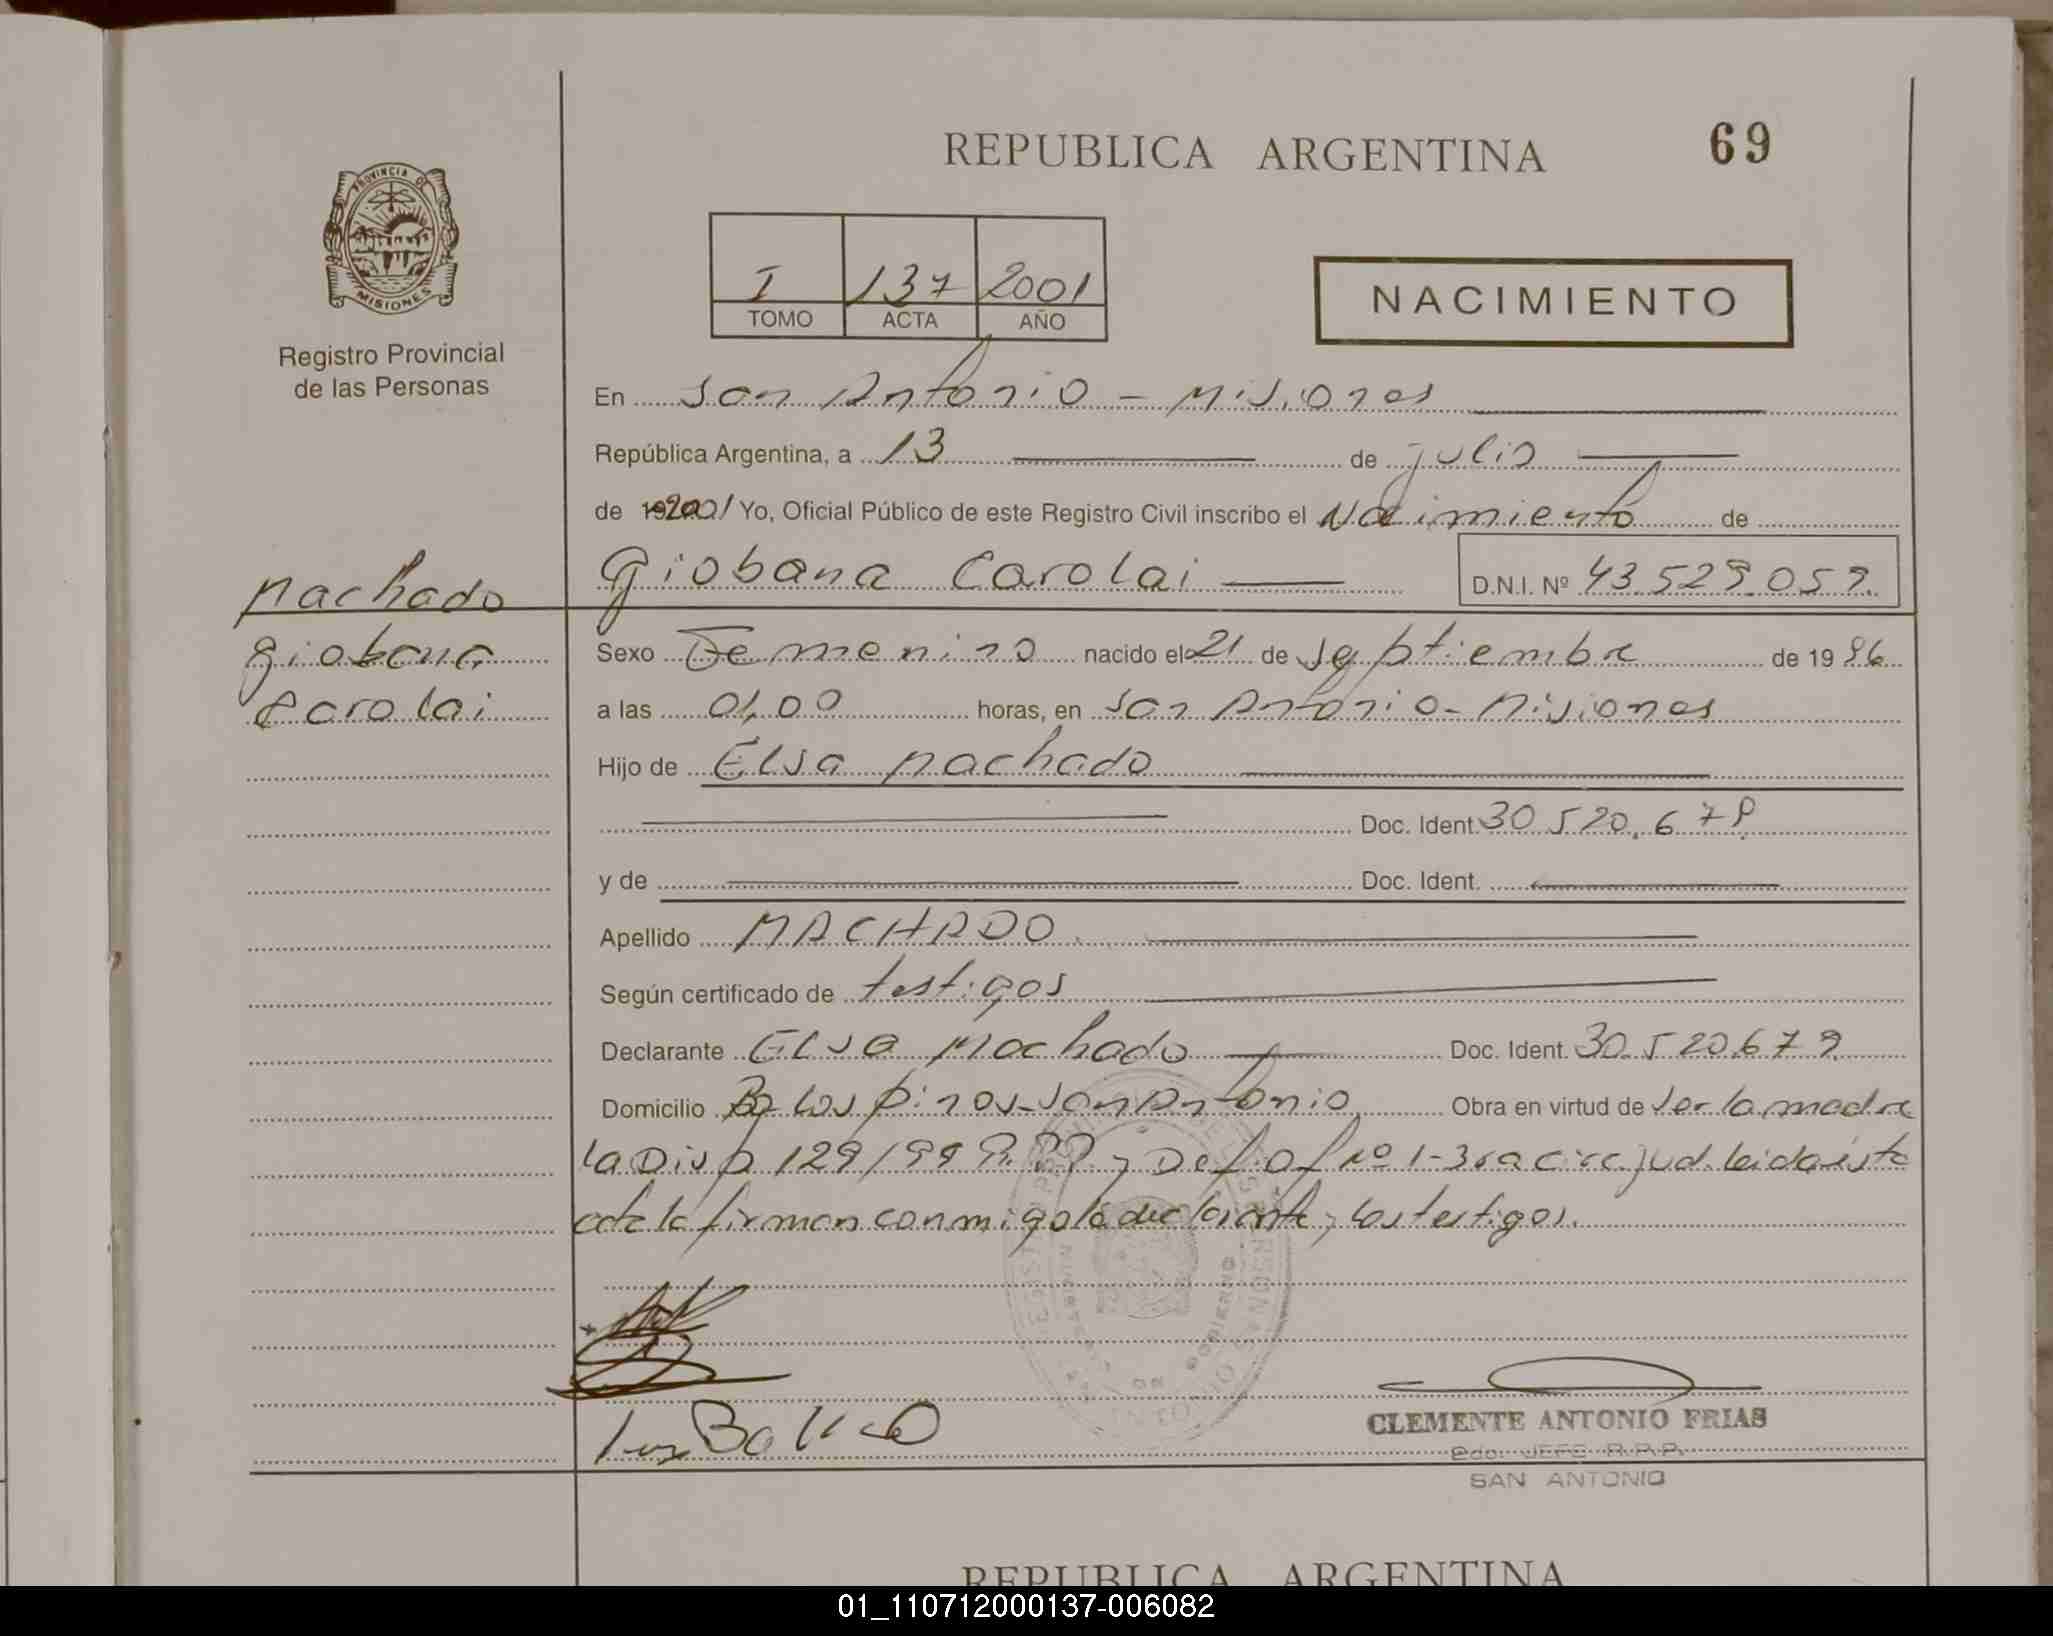 REPUBLICA ARGENTINA
69
PROVINCIA DE
MISIONES
Registro Provincial
de las Personas
I 137 2001
TOMO ACTA AÑO
NACIMIENTO
En San Antonio - Misiones
República Argentina, a 13 de julio
de 192001 Yo, Oficial Público de este Registro Civil inscribo el Nacimiento de
Giobana Carolai D.N.I. Nº 43.529.059.
Machado
Giobana
Carolai
Sexo Femenino nacido el 21 de Septiembre de 1996
a las 01,00 horas, en San Antonio - Misiones
Hijo de Elsa Machado
Doc. Ident. 30.520.679.
y de Doc. Ident.
Apellido MACHADO.
Según certificado de testigos
Declarante Elsa Machado Doc. Ident. 30.520.679.
Domicilio Bº Los Pinos - San Antonio, Obra en virtud de ser la madre
la Disp 129/99 y Def. Of Nº 1 - 3ra circ. jud. leida esta
acta la firman conmigo la declarante y los testigos.
CLEMENTE ANTONIO FRIAS
Edo. JEFE R.P.P.
SAN ANTONIO
REPUBLICA ARGENTINA
01_110712000137-006082